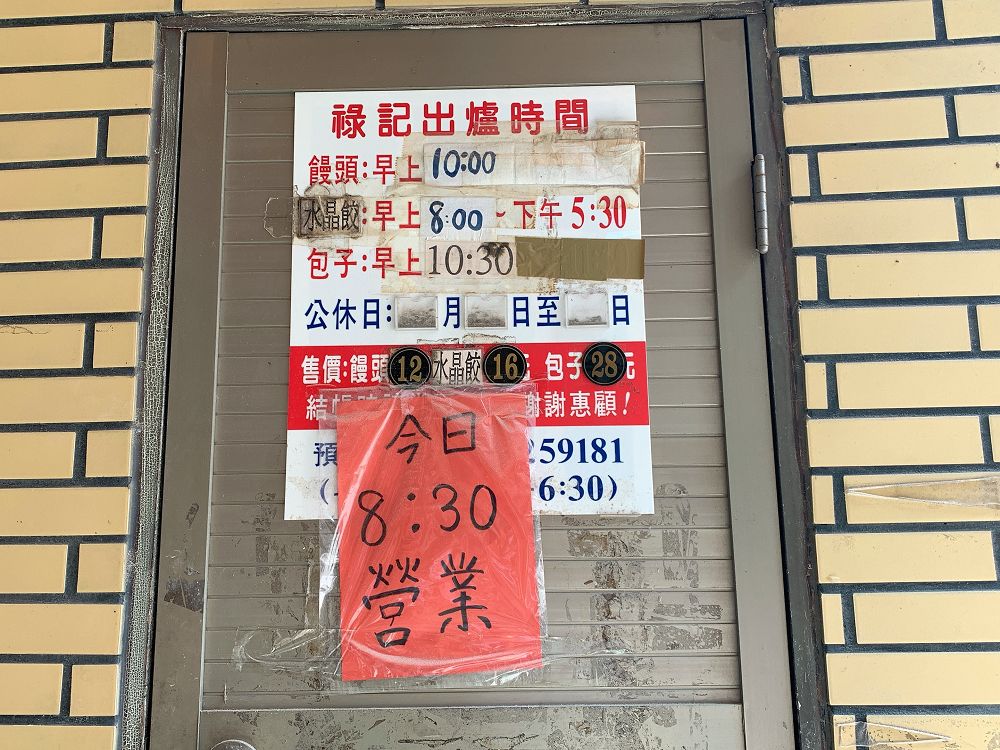 祿記出爐時間
饅頭:早上10:00
水晶餃:早上8:00~下午5:30
包子:早上10:30
公休日: 月 日至 日
售價:饅頭12 水晶餃16元 包子28元
結帳時 謝謝惠顧!
預 259181
( -6:30)
今日
8:30
營業